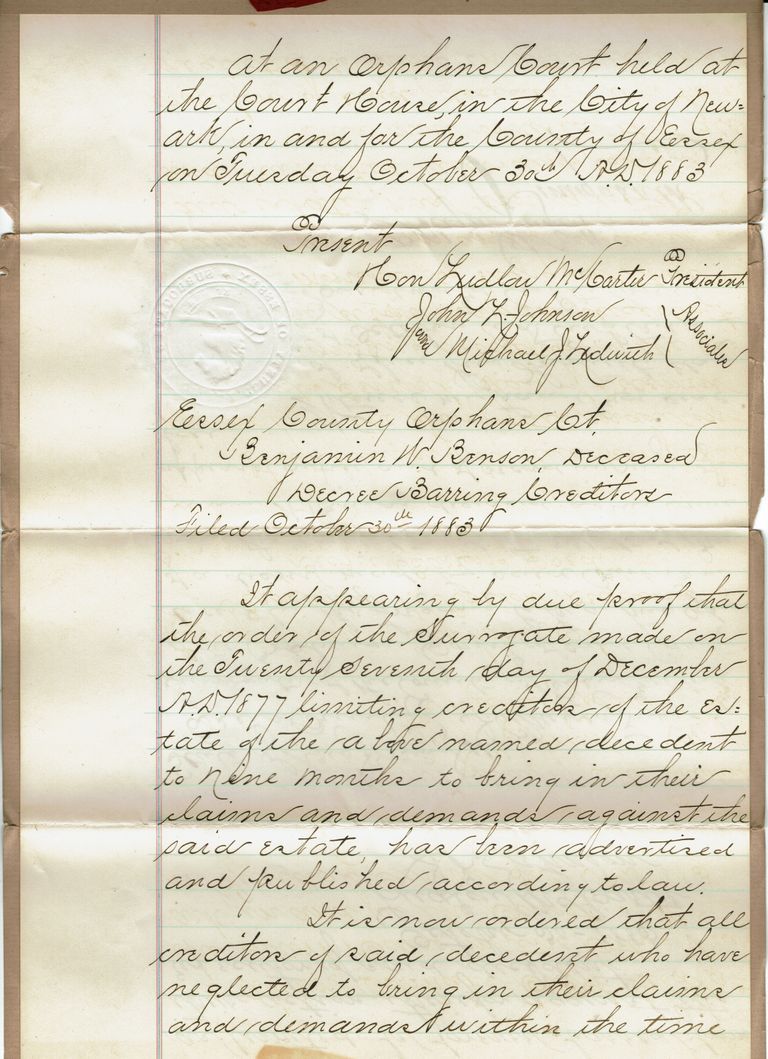 At an Orphans Court held at
the Court House, in the City of New=
ark, in and for the County of Essex
on Tuesday October 30th A.D. 1883
Present
Hon Ludlow McCarter President
John L. Johnson
and Michael J. Ledwith } Associates
Essex County Orphans Ct.
Benjamin W. Benson, Deceased
Decree Barring Creditors
Filed October 30th 1883
It appearing by due proof that
the order of the Surrogate made on
the Twenty Seventh day of December
A.D. 1877 limiting creditors of the Es=
tate of the above named decedent
to Nine Months to bring in their
claims and demands against the
said Estate, has been advertised
and published according to law.
It is now ordered that all
creditors of said decedent who have
neglected to bring in their claims
and demands within the time